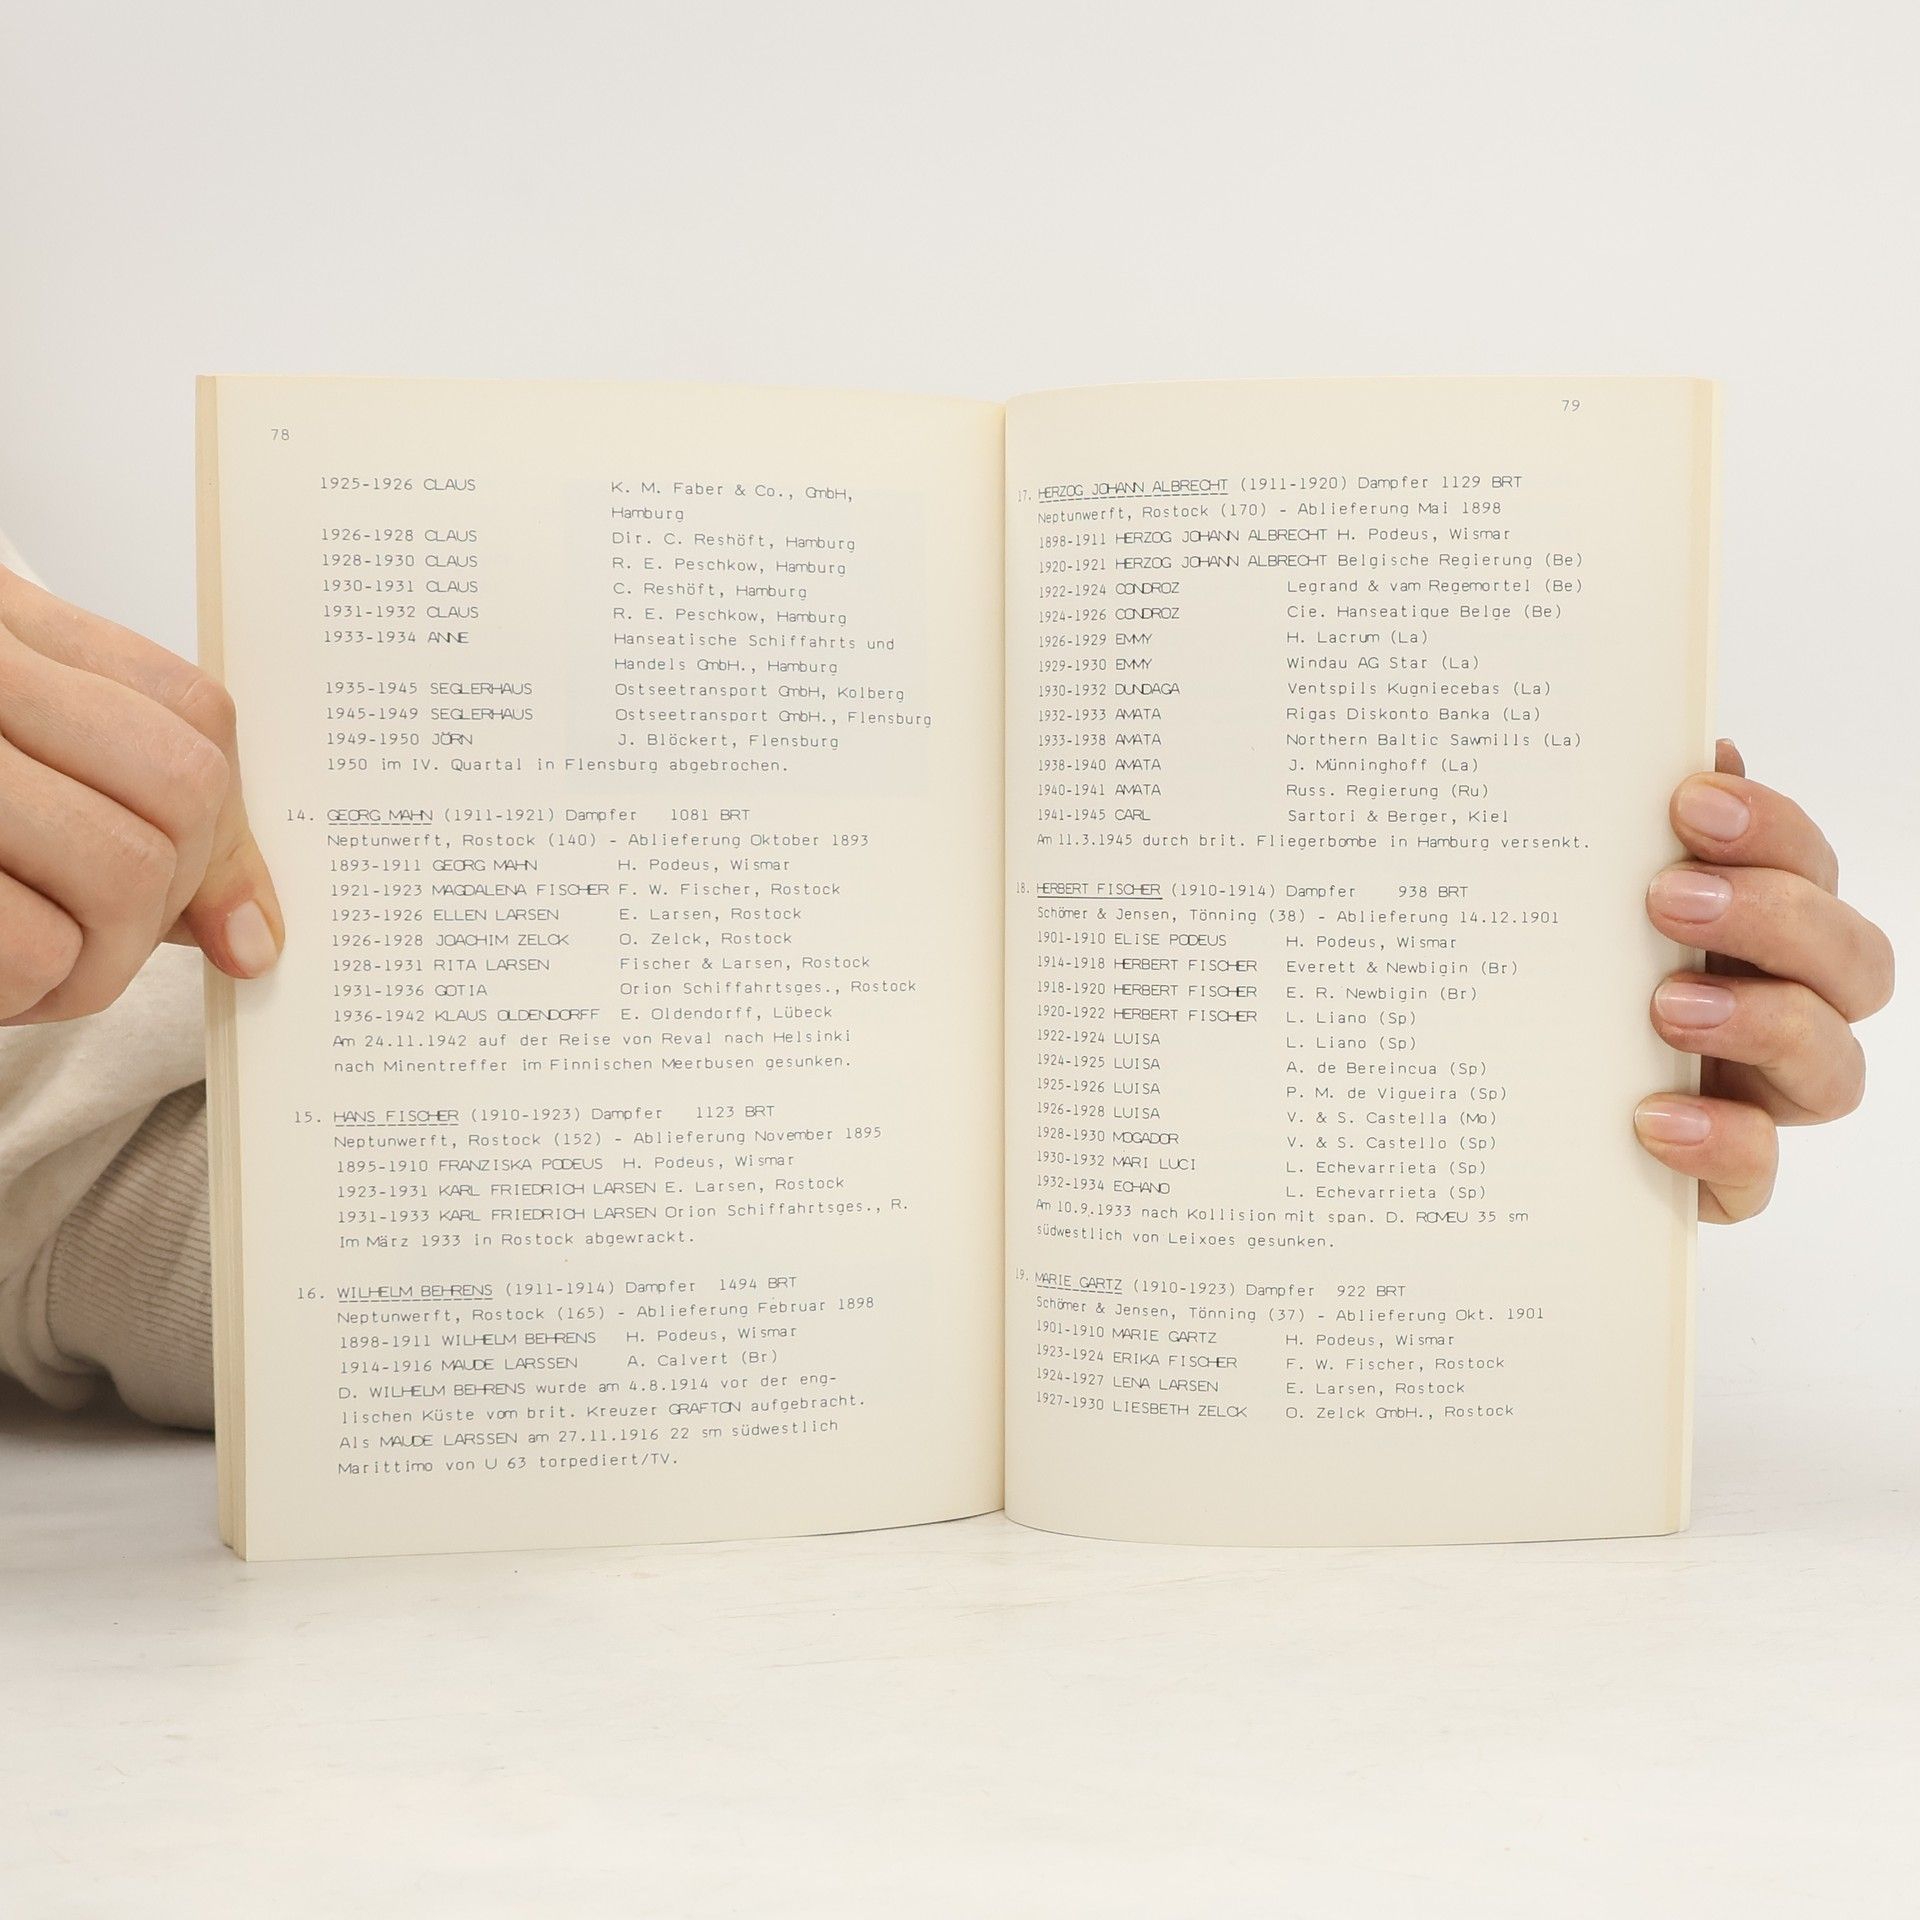 78
1925-1926 CLAUS K. M. Faber & Co., GmbH,
Hamburg
1926-1928 CLAUS Dir. C. Reshöft, Hamburg
1928-1930 CLAUS R. E. Peschkow, Hamburg
1930-1931 CLAUS C. Reshöft, Hamburg
1931-1932 CLAUS R. E. Peschkow, Hamburg
1933-1934 ANNE Hanseatische Schiffahrts und
Handels GmbH., Hamburg
1935-1945 SEGLERHAUS Ostseetransport GmbH, Kolberg
1945-1949 SEGLERHAUS Ostseetransport GmbH., Flensburg
1949-1950 JÖRN J. Blöckert, Flensburg
1950 im IV. Quartal in Flensburg abgebrochen.
14. GEORG MAHN (1911-1921) Dampfer 1081 BRT
Neptunwerft, Rostock (140) - Ablieferung Oktober 1893
1893-1911 GEORG MAHN H. Podeus, Wismar
1921-1923 MAGDALENA FISCHER F. W. Fischer, Rostock
1923-1926 ELLEN LARSEN E. Larsen, Rostock
1926-1928 JOACHIM ZELCK O. Zelck, Rostock
1928-1931 RITA LARSEN Fischer & Larsen, Rostock
1931-1936 GOTIA Orion Schiffahrtsges., Rostock
1936-1942 KLAUS OLDENDORFF E. Oldendorff, Lübeck
Am 24.11.1942 auf der Reise von Reval nach Helsinki
nach Minentreffer im Finnischen Meerbusen gesunken.
15. HANS FISCHER (1910-1923) Dampfer 1123 BRT
Neptunwerft, Rostock (152) - Ablieferung November 1895
1895-1910 FRANZISKA PODEUS H. Podeus, Wismar
1923-1931 KARL FRIEDRICH LARSEN E. Larsen, Rostock
1931-1933 KARL FRIEDRICH LARSEN Orion Schiffahrtsges., R.
Im März 1933 in Rostock abgewrackt.
16. WILHELM BEHRENS (1911-1914) Dampfer 1494 BRT
Neptunwerft, Rostock (165) - Ablieferung Februar 1898
1898-1911 WILHELM BEHRENS H. Podeus, Wismar
1914-1916 MAUDE LARSSEN A. Calvert (Br)
D. WILHELM BEHRENS wurde am 4.8.1914 vor der eng-
lischen Küste vom brit. Kreuzer GRAFTON aufgebracht.
Als MAUDE LARSSEN am 27.11.1916 22 sm südwestlich
Marittimo von U 63 torpediert/TV.
79
17. HERZOG JOHANN ALBRECHT (1911-1920) Dampfer 1129 BRT
Neptunwerft, Rostock (170) - Ablieferung Mai 1898
1898-1911 HERZOG JOHANN ALBRECHT H. Podeus, Wismar
1920-1921 HERZOG JOHANN ALBRECHT Belgische Regierung (Be)
1922-1924 CONDROZ Legrand & vam Regemortel (Be)
1924-1926 CONDROZ Cie. Hanseatique Belge (Be)
1926-1929 EMMY H. Lacrum (La)
1929-1930 EMMY Windau AG Star (La)
1930-1932 DUNDAGA Ventspils Kugniecebas (La)
1932-1933 AMATA Rigas Diskonto Banka (La)
1933-1938 AMATA Northern Baltic Sawmills (La)
1938-1940 AMATA J. Münninghoff (La)
1940-1941 AMATA Russ. Regierung (Ru)
1941-1945 CARL Sartori & Berger, Kiel
Am 11.3.1945 durch brit. Fliegerbombe in Hamburg versenkt.
18. HERBERT FISCHER (1910-1914) Dampfer 938 BRT
Schömer & Jensen, Tönning (38) - Ablieferung 14.12.1901
1901-1910 ELISE PODEUS H. Podeus, Wismar
1914-1918 HERBERT FISCHER Everett & Newbigin (Br)
1918-1920 HERBERT FISCHER E. R. Newbigin (Br)
1920-1922 HERBERT FISCHER L. Liano (Sp)
1922-1924 LUISA L. Liano (Sp)
1924-1925 LUISA A. de Bereincua (Sp)
1925-1926 LUISA P. M. de Vigueira (Sp)
1926-1928 LUISA V. & S. Castella (Mo)
1928-1930 MOGADOR V. & S. Castello (Sp)
1930-1932 MARI LUCI L. Echevarrieta (Sp)
1932-1934 ECHANO L. Echevarrieta (Sp)
Am 10.9.1933 nach Kollision mit span. D. ROMEU 35 sm
südwestlich von Leixoes gesunken.
19. MARIE GARTZ (1910-1923) Dampfer 922 BRT
Schömer & Jensen, Tönning (37) - Ablieferung Okt. 1901
1901-1910 MARIE GARTZ H. Podeus, Wismar
1923-1924 ERIKA FISCHER F. W. Fischer, Rostock
1924-1927 LENA LARSEN E. Larsen, Rostock
1927-1930 LIESBETH ZELCK O. Zelck GmbH., Rostock